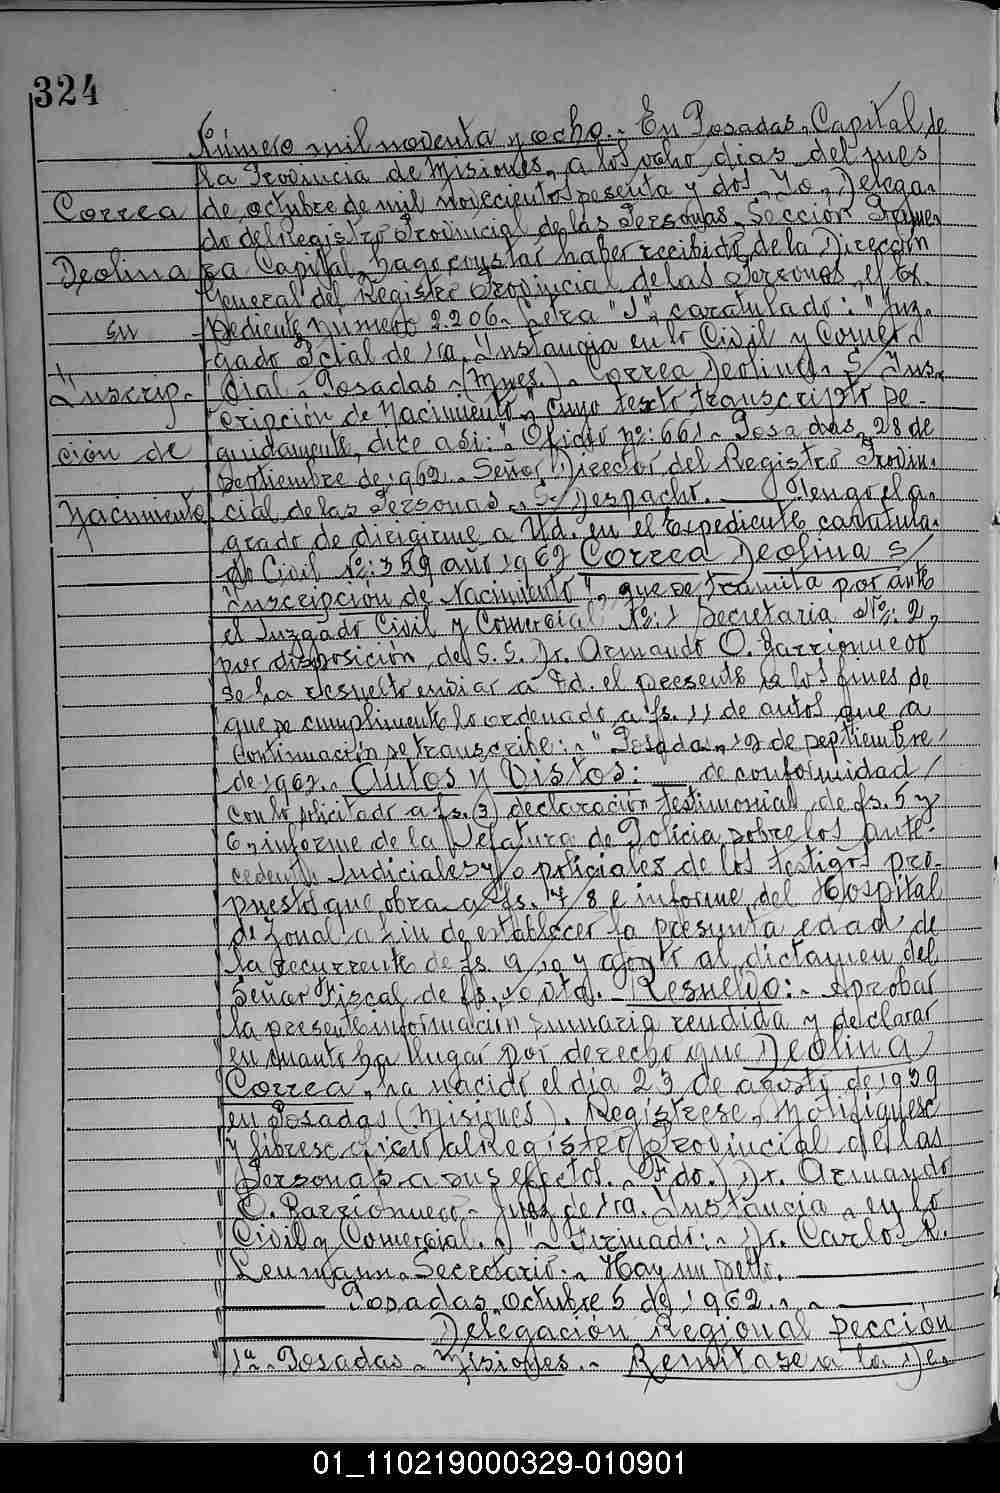 324
Número mil noventa y ocho.- En Posadas, Capital de
la Provincia de Misiones, a los ocho días del mes
Correa
de octubre de mil novecientos sesenta y dos, Yo, Delega-
do del Registro Provincial de las Personas, Sección Prime-
Deolina
ra Capital, hago constar haber recibido de la Dirección
General del Registro Provincial de las Personas, el Ex-
su
pediente número 2.206- Letra "J", caratulado: "Juz-
gado Letrado de 1ra. Instancia en lo Civil y Comer-
Inscrip-
cial - Posadas - (Mnes.) - Correa Deolina - S/ Ins-
cripción de Nacimiento", cuyo texto transcripto se-
ción de
guidamente, dice así:- Oficio nº: 661- Posadas, 28 de
septiembre de 1962.- Señor Director del Registro Provin-
Nacimiento
cial de las Personas - S/ Despacho. Tengo el a-
grado de dirigirme a Ud. en el Expediente caratula-
do Civil Nº: 359 año 1962 Correa Deolina s/
Inscripcion de Nacimiento", que se tramita por ante
el Juzgado Civil y Comercial Nº: 1 Secretaria Nº: 2,
por disposición de S. S. Dr. Armando O. Barrionuevo
se ha resuelto enviar a Ud. el presente a los fines de
que se cumplimente lo ordenado a fs. 11 de autos que a
continuación se transcribe:- "Posadas, 19 de septiembre
de 1962.- Autos y Vistos: de conformidad
con lo solicitado a fs. (3) declaración testimonial de fs. 5 y
6, informe de la Jefatura de Policia sobre los ante-
cedentes Judiciales y/o policiales de los testigos pro-
puestos que obra a fs. 7/8 e informe del Hospital
Zonal a fin de establecer la presunta edad de
la recurrente de fs. 9/10 y atento al dictamen del
Señor Fiscal de fs. 10 vta. Resuelvo:- Aprobar
la presente información sumaria rendida y declarar
en cuanto ha lugar por derecho que Deolina
Correa, ha nacido el día 23 de agosto de 1939
en Posadas (Misiones). Regístrese, Notifíquese
y líbrese oficio al Registro Provincial de las
Personas a sus efectos.- Fdo.) Dr. Armando
O. Barrionuevo - Juez de 1ra. Instancia - en lo
Civil y Comercial." - Firmado:- Dr. Carlos R.
Leumann - Secretario.- Hay un sello.
Posadas, octubre 5 de 1962.-
Delegación Regional Sección
1ª- Posadas - Misiones - Remitase a la De-
01_110219000329-010901